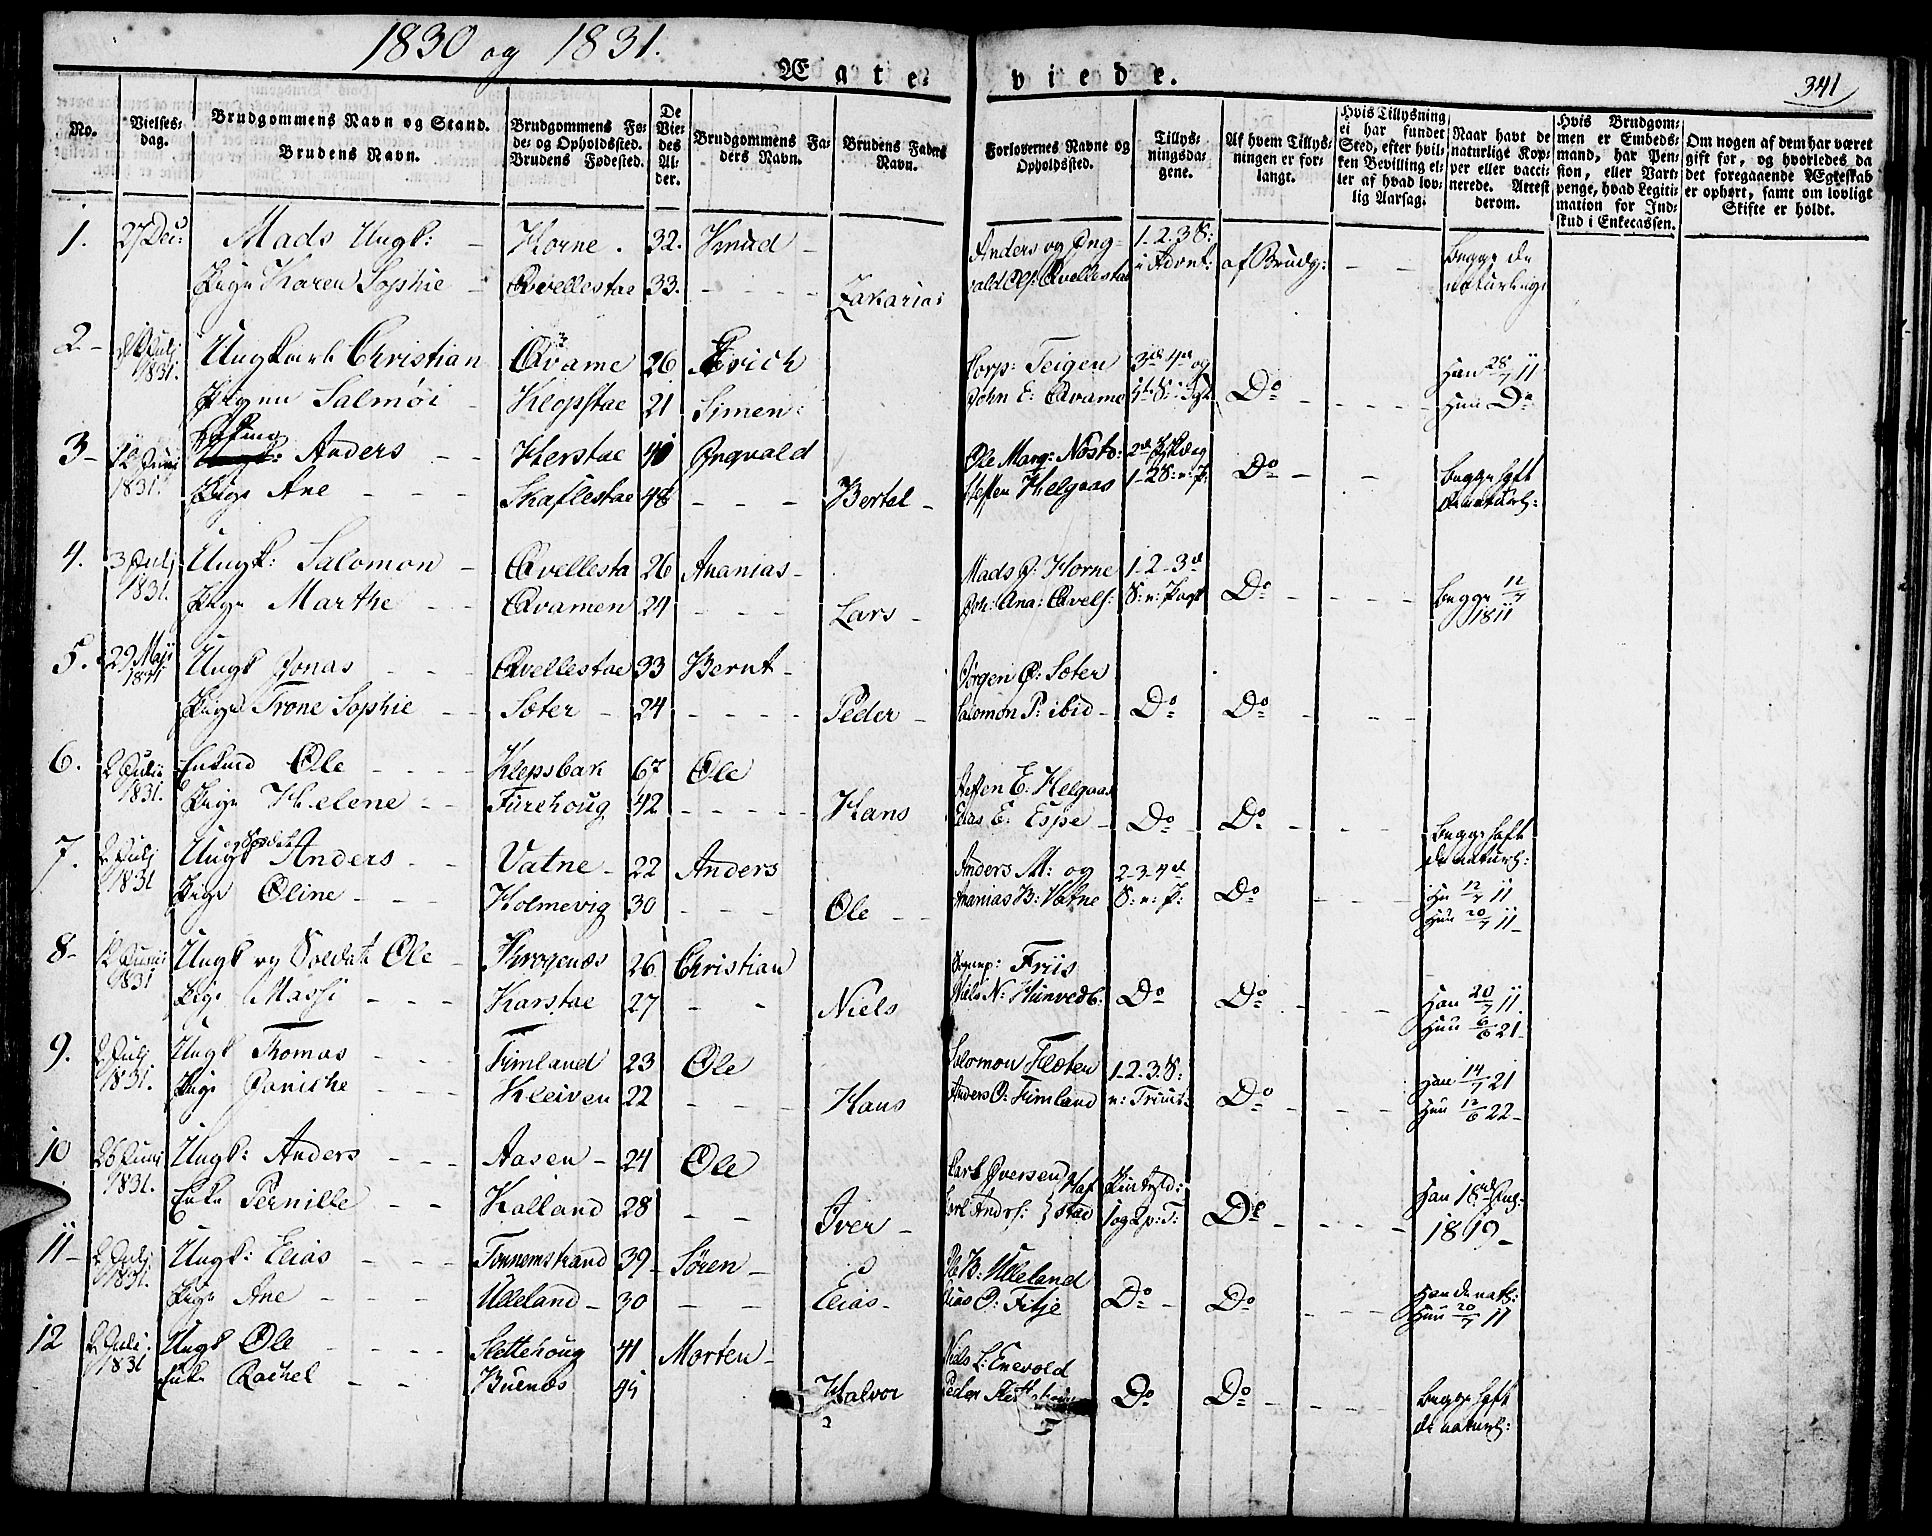 1830 og 1831.
Ægteviede.
341
No.
Vielsesdag.
Brudgommens Navn og Stand.
Brudens Navn.
Brudgommens Føde- og Opholdssted.
Brudens Fødested.
De Viedes Alder.
Brudgommens Faders Navn.
Brudens Faders Navn.
Forlovernes Navne og Opholdssted.
Tillysningsdagene.
Af hvem Tillysningen er forlangt.
Hvis Tillysning ei har fundet Sted, efter hvilken Bevilling eller af hvad lovlig Aarsag.
Naar havt de naturlige Kopper eller vaccinerede. Attest derom.
Hvis Brudgommen er Embedsmand, har Pension, eller Vartpenge, hvad Legitimation for Indskud i Enkecassen.
Om nogen af dem har været gift før, og hvorledes da det foregaaende Ægteskab er ophørt, samt om lovligt Skifte er holdt.
1. 27 Dec: Mads Ungk: - Horne. 32. Knud - Anders og Ing- 1-2-3 S: Begge de
Pige Karen Sophie - Qvellestae 33. - - - - Zakarias vald Qvellestae i Advnt: af Brudg: - - naturlige
2 - Juli 1831. Ungkarl Christian Qvame 26 Erich Corp: Teigen 3die 4de og Han 28/7 11
Pigen Salmøi - Klopstae 21 Simen: John E: Qvame Do - - - - Hun Do
3 - 12 Juni 1831. Anders - - Herstae 40 Ingvald Ole Mang: Nosto: Begge haft
Pige Ane - - - Skaflestae 48 - - - Bertel - Steffen Helgaas 1-2 S: n: P: Do - - de naturl:
4. 3 Juli 1831. Ungk: Salomon - Qvellesta 26 Ananias - Mads O: Horne 1-2-3de Begge 12/7
Pige Marthe - - Qvamen 24 - - - Lars - Joh: Ana: Qvels: S: n: Do - - - - 1811
5. 29 Maji Ungk Jonas - - - Qvellestae 33 Bernt - Jørgen P: Soter
Pige Trone Sophie - - Soter - 24 - - - - Peder - Salomon P: ibid - Do Do - - -
6. 2 Julii 1831. Enkmd Ole - - - - Klepsbak 67 Ole Steffen E: Helgaas
Pige Helene - - Furehoug 42 - - - - Hans Elias E: Espe - Do Do - - - Begge haft
7. 2 Julj 1831 Ungk og Soldat Anders - - Vatne - 22 Anders Anders M: og 2-3-4de de naturl:
Pige Oline - - - Holmevig 30 - - - Ole - - Ananias B: Vatne S: n: P: Do - - - - 12/7 11
Hun 20/7 11 -
8 - 12 Juni 1831 Ungk og Soldat Ole - Krogenæs 26 Christian Friis
Pige Massi - - - Karstae 27 - - Niels Niels N: Hunvedb: Do Do - - - Han 20/7 11.
Hun 6/6 21 -
9. 2 Julj 1831. Ungk Thomas - - - Fimland 23 Ole Salomon Floten 1-2-3. S:
Pige Janiche - - Kleiven 22 - - - Hans Anders O: Fimland n: Trinit: Do - - - Han 14/7 21
Hun 12/6 22 -
10 26 Juni 1831. Ungk: Anders - - - Aasen - 24 Ole Carl Iversen
Enke Pernille - - Kalland 28 - - Iver - Carl Andrs: Hafstad Do - - - - Han 18
1819 -
11 - 2 Julj 1831. Ungk: Elias - - - Tonnemstrand 39 - Søren - Ole B: Ulleland
Pige Ane - - - Ulleland - 30 - - Elias - Elias O: Fitje Do - Do - - - Han de nat:
Hun 20/7 11
12 2 Juli: 1831 Ungk Ole - - - - Slettehoug 41 Morten - Niels L: Enevold
Enke Rachel - - Buenæs 45 Halvor Peder Do Do - - - - Begge haft
de naturl: